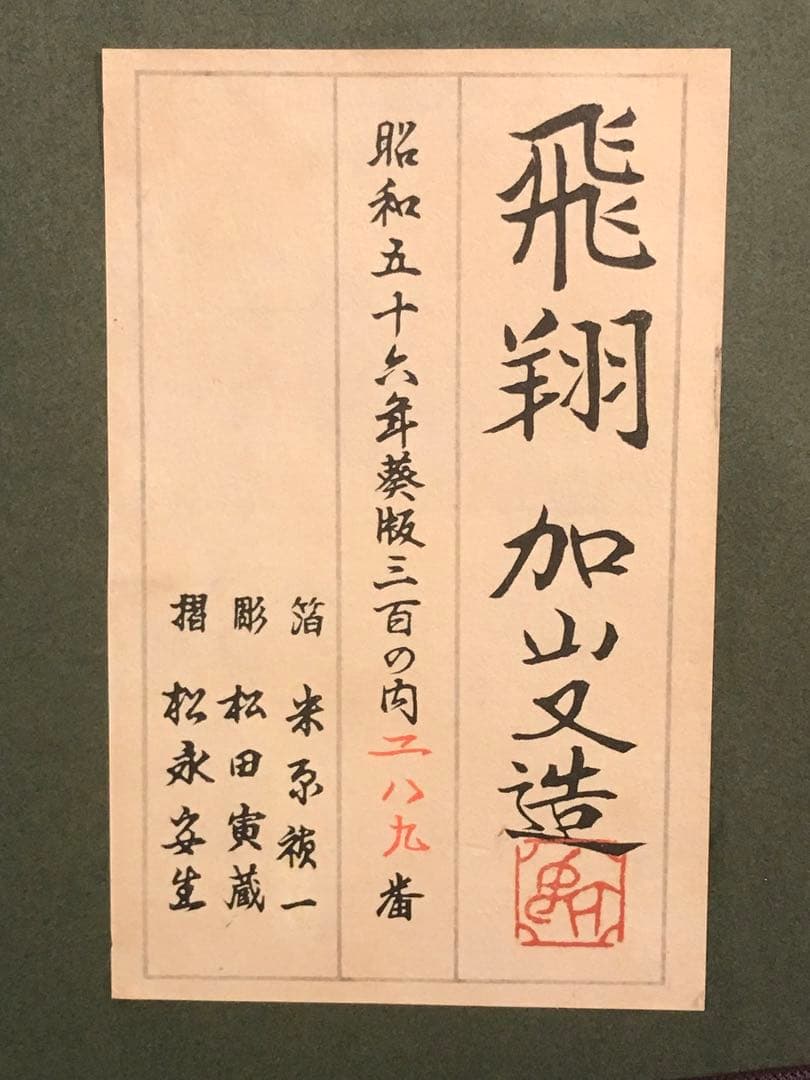 飛翔 加山又造
昭和五十六年葵版三百の内二八九番
箔 米原禎一
彫 松田寅蔵
摺 松永安生